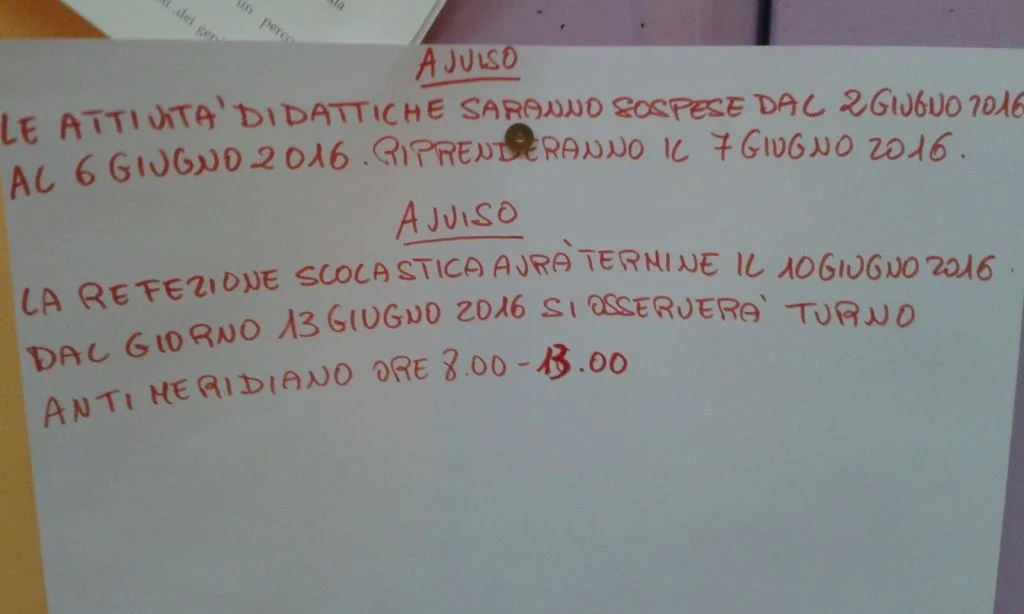 un perco
dei gen
AVVISO
LE ATTIVITA' DIDATTICHE SARANNO SOSPESE DAL 2 GIUGNO 2016
AL 6 GIUGNO 2016. RIPRENDERANNO IL 7 GIUGNO 2016.
AVVISO
LA REFEZIONE SCOLASTICA AVRÀ TERMINE IL 10 GIUGNO 2016.
DAL GIORNO 13 GIUGNO 2016 SI OSSERVERA' TURNO
ANTI MERIDIANO ORE 8.00-13.00